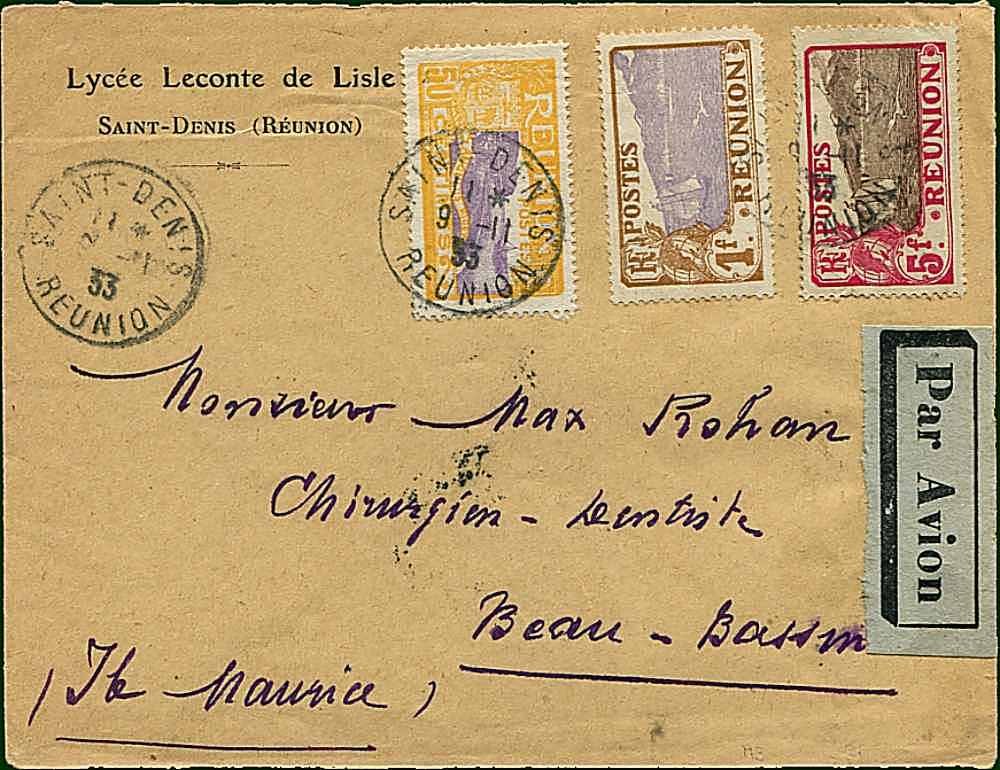 Lycée Leconte de Lisle
SAINT-DENIS (RÉUNION)
SAINT-DENIS
11 *
33
REUNION
50
REUNION
SAINT DENIS
11 *
9 -11
33
REUNION
POSTES
REUNION
RF
1f.
POSTES
REUNION
RF
5f.
33
Par Avion
Monsieur Max Rohan
Chirurgien - Dentiste
Beau - Bassin
(Ile Maurice)